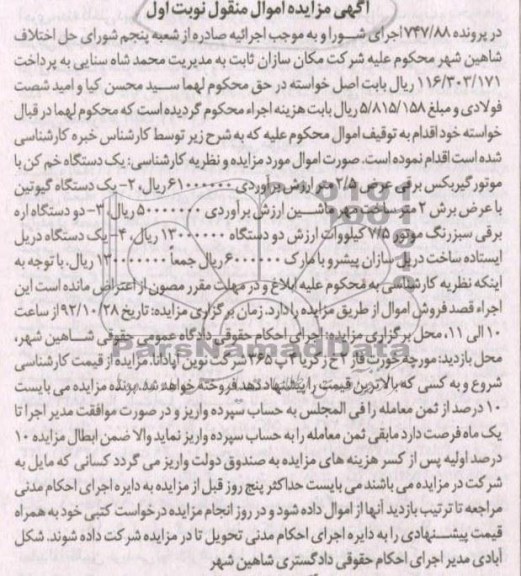 آگهی مزایده اموال منقول نوبت اول
در پرونده ۷۴۷/۸۸ اجرای شورا و به موجب اجرائیه صادره از شعبه پنجم شورای حل اختلاف
شاهین شهر محکوم علیه شرکت مکان سازان ثابت به مدیریت محمد شاه سنایی به پرداخت
۱۱۶/۳۰۳/۱۷۱ ریال بابت اصل خواسته در حق محکوم لهما سید محسن کیا و امید شصت
فولادی و مبلغ ۵/۸۱۵/۱۵۸ ریال بابت هزینه اجراء محکوم گردیده است که محکوم لهما در قبال
خواسته خود اقدام به توقیف اموال محکوم علیه که به شرح زیر توسط کارشناس خبره کارشناسی
شده است اقدام نموده است. صورت اموال مورد مزایده و نظریه کارشناسی: یک دستگاه خم کن با
موتور گیربکس برقی عرض ۲/۵ متر ارزش برآوردی ۶۱۰۰۰۰۰۰ ریال، ۲- یک دستگاه گیوتین
با عرض برش ۲ متر ساخت مهر ماشین ارزش برآوردی ۵۰۰۰۰۰۰۰ ریال، ۳- دو دستگاه اره
برقی سبزرنگ موتور ۷/۵ کیلووات ارزش دو دستگاه ۱۳۰۰۰۰۰۰ ریال، ۴- یک دستگاه دریل
ایستاده ساخت دریل سازان پیشرو با مارک ۶۰۰۰۰۰۰ ریال جمعاً ۱۳۰۰۰۰۰۰۰ ریال، با توجه به
اینکه نظریه کارشناسی به محکوم علیه ابلاغ و در مهلت مقرر مصون از اعتراض مانده است این
اجراء قصد فروش اموال از طریق مزایده را دارد. زمان برگزاری مزایده: تاریخ ۹۲/۱۰/۲۸ از ساعت
۱۰ الی ۱۱، محل برگزاری مزایده: اجرای احکام حقوقی دادگاه عمومی حقوقی شاهین شهر،
محل بازدید: مورچه خورت فاز ۲ خ زکریا ۲ پ ۳۶۵ شرکت نوین آپادانا. مزایده از قیمت کارشناسی
شروع و به کسی که بالاترین قیمت را پیشنهاد دهد فروخته خواهد شد. برنده مزایده می بایست
۱۰ درصد از ثمن معامله را فی المجلس به حساب سپرده واریز و در صورت موافقت مدیر اجرا تا
یک ماه فرصت دارد مابقی ثمن معامله را به حساب سپرده واریز نماید والا ضمن ابطال مزایده ۱۰
درصد اولیه پس از کسر هزینه های مزایده به صندوق دولت واریز می گردد کسانی که مایل به
شرکت در مزایده می باشند می بایست حداکثر پنج روز قبل از مزایده به دایره اجرای احکام مدنی
مراجعه تا ترتیب بازدید آنها از اموال داده شود و در روز انجام مزایده درخواست کتبی خود به همراه
قیمت پیشنهادی را به دایره اجرای احکام مدنی تحویل تا در مزایده شرکت داده شوند. شکل
آبادی مدیر اجرای احکام حقوقی دادگستری شاهین شهر
ParsNamadData